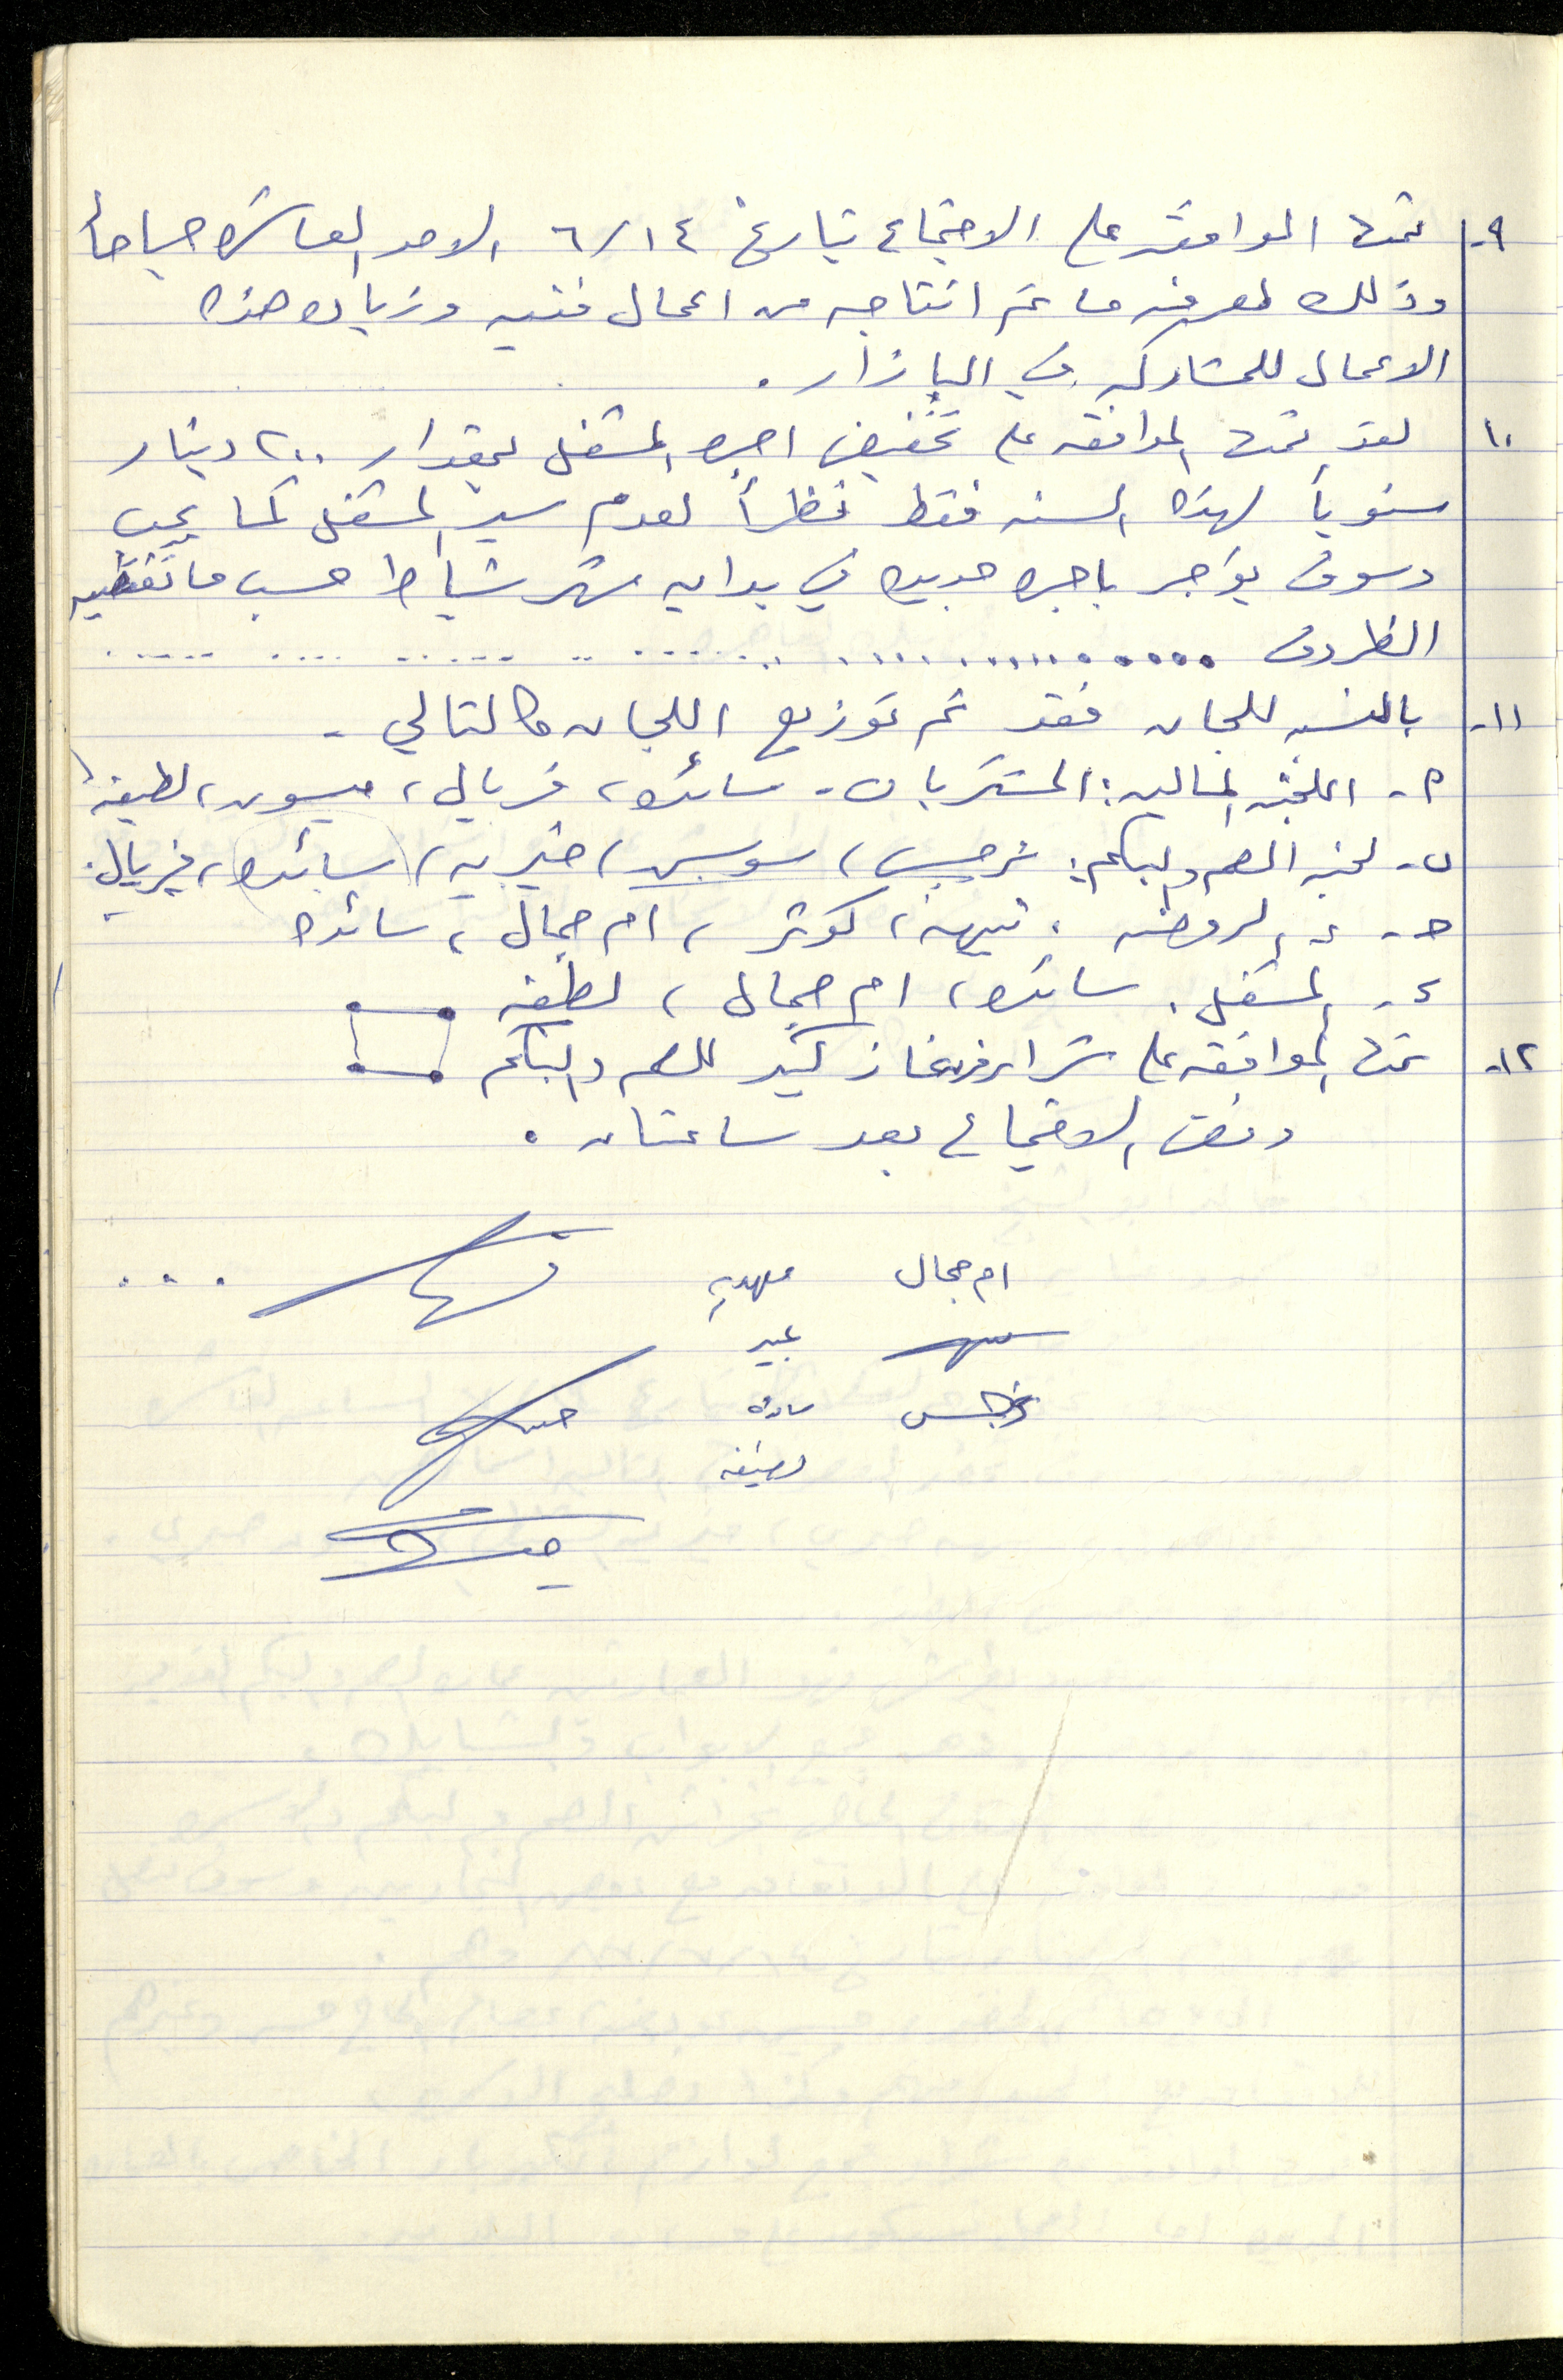 ٩- تمت الموافقه على الاجتماع بتاريخ ٦/١٤ الاحد العاشره صباحاً
وذلك لمعرفه ما تم انتاجه من اعمال فنيه وزياده هذه
الاعمال للمشاركه في البازار.
١٠ لقد تمت الموافقه على تخفيض اجره المشغل بمقدار ٢٠٠ دينار
سنوياً لهذه السنه فقط نظراً لعدم سير المشغل كما يجب
وسوف يؤجر باجره جديده في بدايه شهر شباط حسب ما تقتضيه
الظروف ..........
١١- بالنسبه للجان فقد تم توزيع اللجان كالتالي -
٢- اللجنه الماليه: المشتريات - سائده، فريال، ميسون، لطيفه
ب- لجنه الصم والبكم: نرجس، سوسن، خيريه، سائده، فريال.
حـ- = الروضه: نبيهه، كوثر، ام جمال، سائده
ء- المشغل. سائده، ام جمال، لطيفه
١٢- تمت الموافقه على شراء فرن غاز كبير للصم والبكم
وفض الاجتماع بعد ساعتان.
ام جمال مهديه
عبير
نرجس سائده
لطيفه